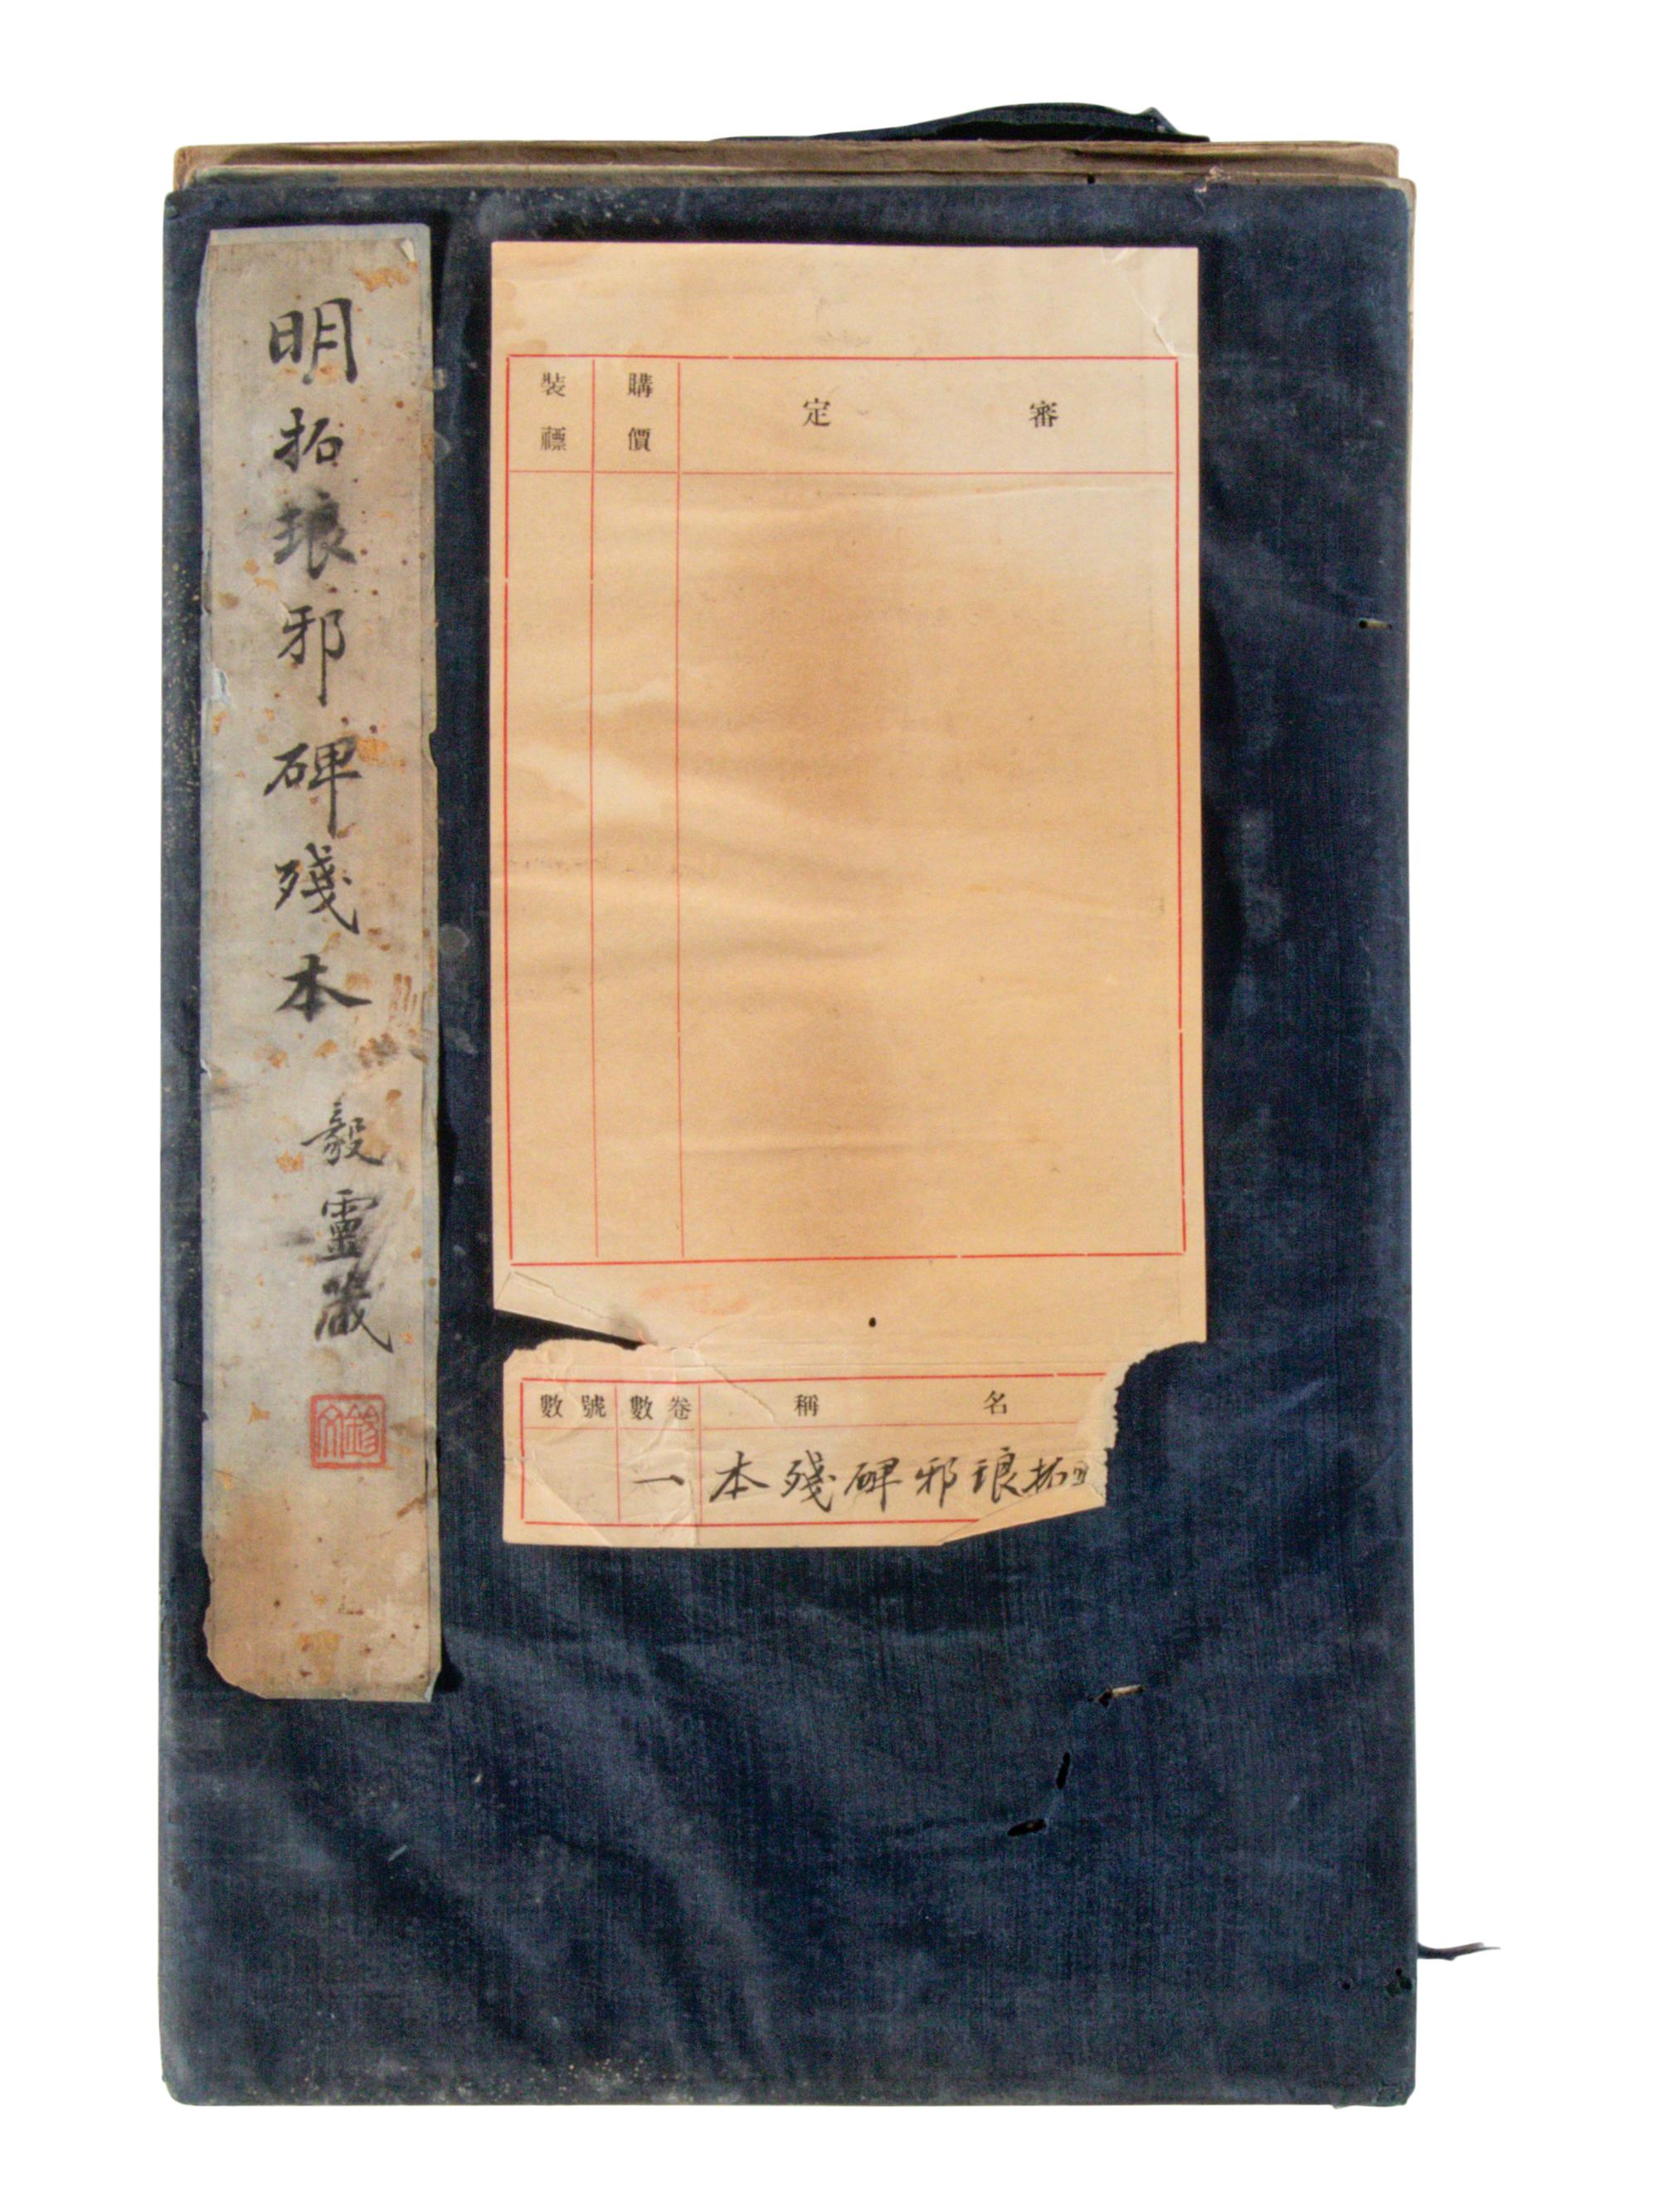 明拓琅邪碑殘本
毅靈藏
審定
購價
裝褾
名稱
卷數
號數
拓琅邪碑殘本
一